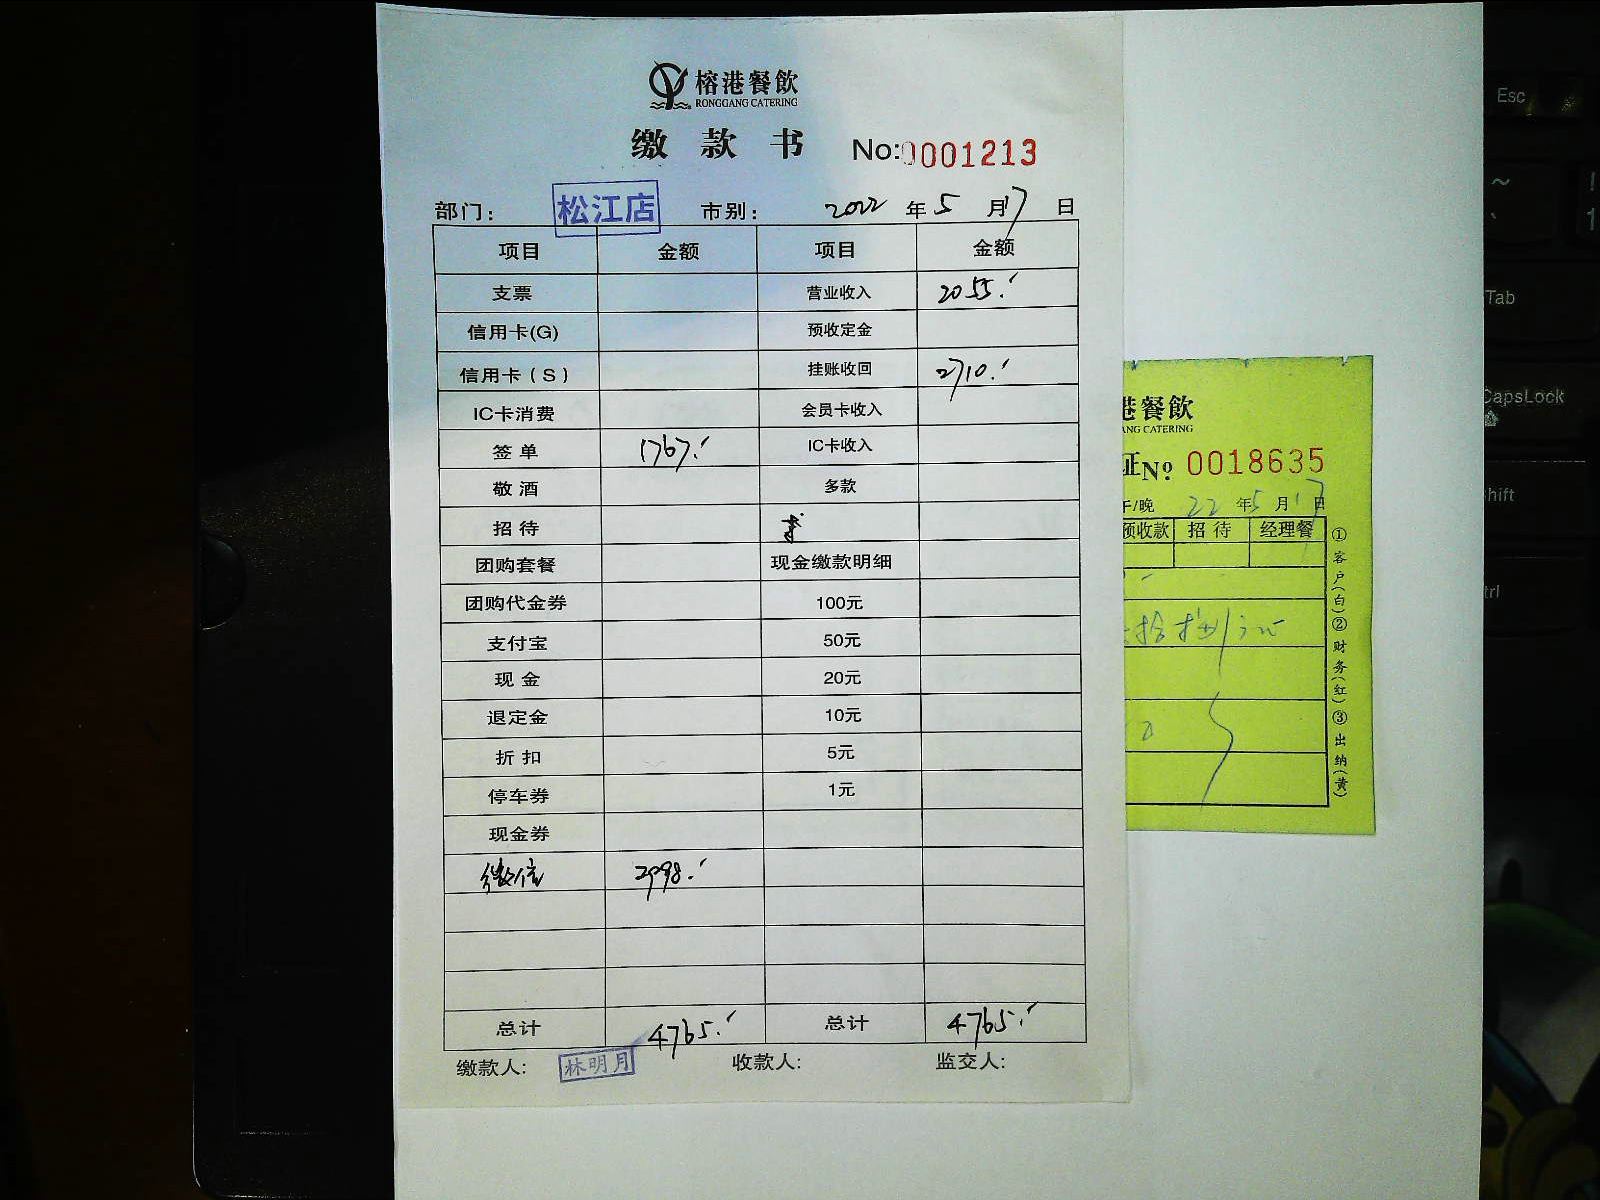 榕港餐飲
RONGGANG CATERING
缴款书 No:0001213
部门: 松江店 市别: 2022年5月17日
项目 金额 项目 金额
支票 营业收入 2055.-
信用卡(G) 预收定金
信用卡(S) 挂账收回 2710.-
IC卡消费 会员卡收入
签单 1767.- IC卡收入
敬酒 多款
招待
团购套餐 现金缴款明细
团购代金券 100元
支付宝 50元
现金 20元
退定金 10元
折扣 5元
停车券 1元
现金券
微信 2998.-
总计 4765.- 总计 4765.-
缴款人: 林明月 收款人: 监交人:
港餐飲
ANG CATERING
证No 0018635
午/晚 22年5月17日
预收款 招待 经理餐
①客户(白)②财务(红)③出纳(黄)
Esc
~
!
1
Tab
CapsLock
Shift
trl